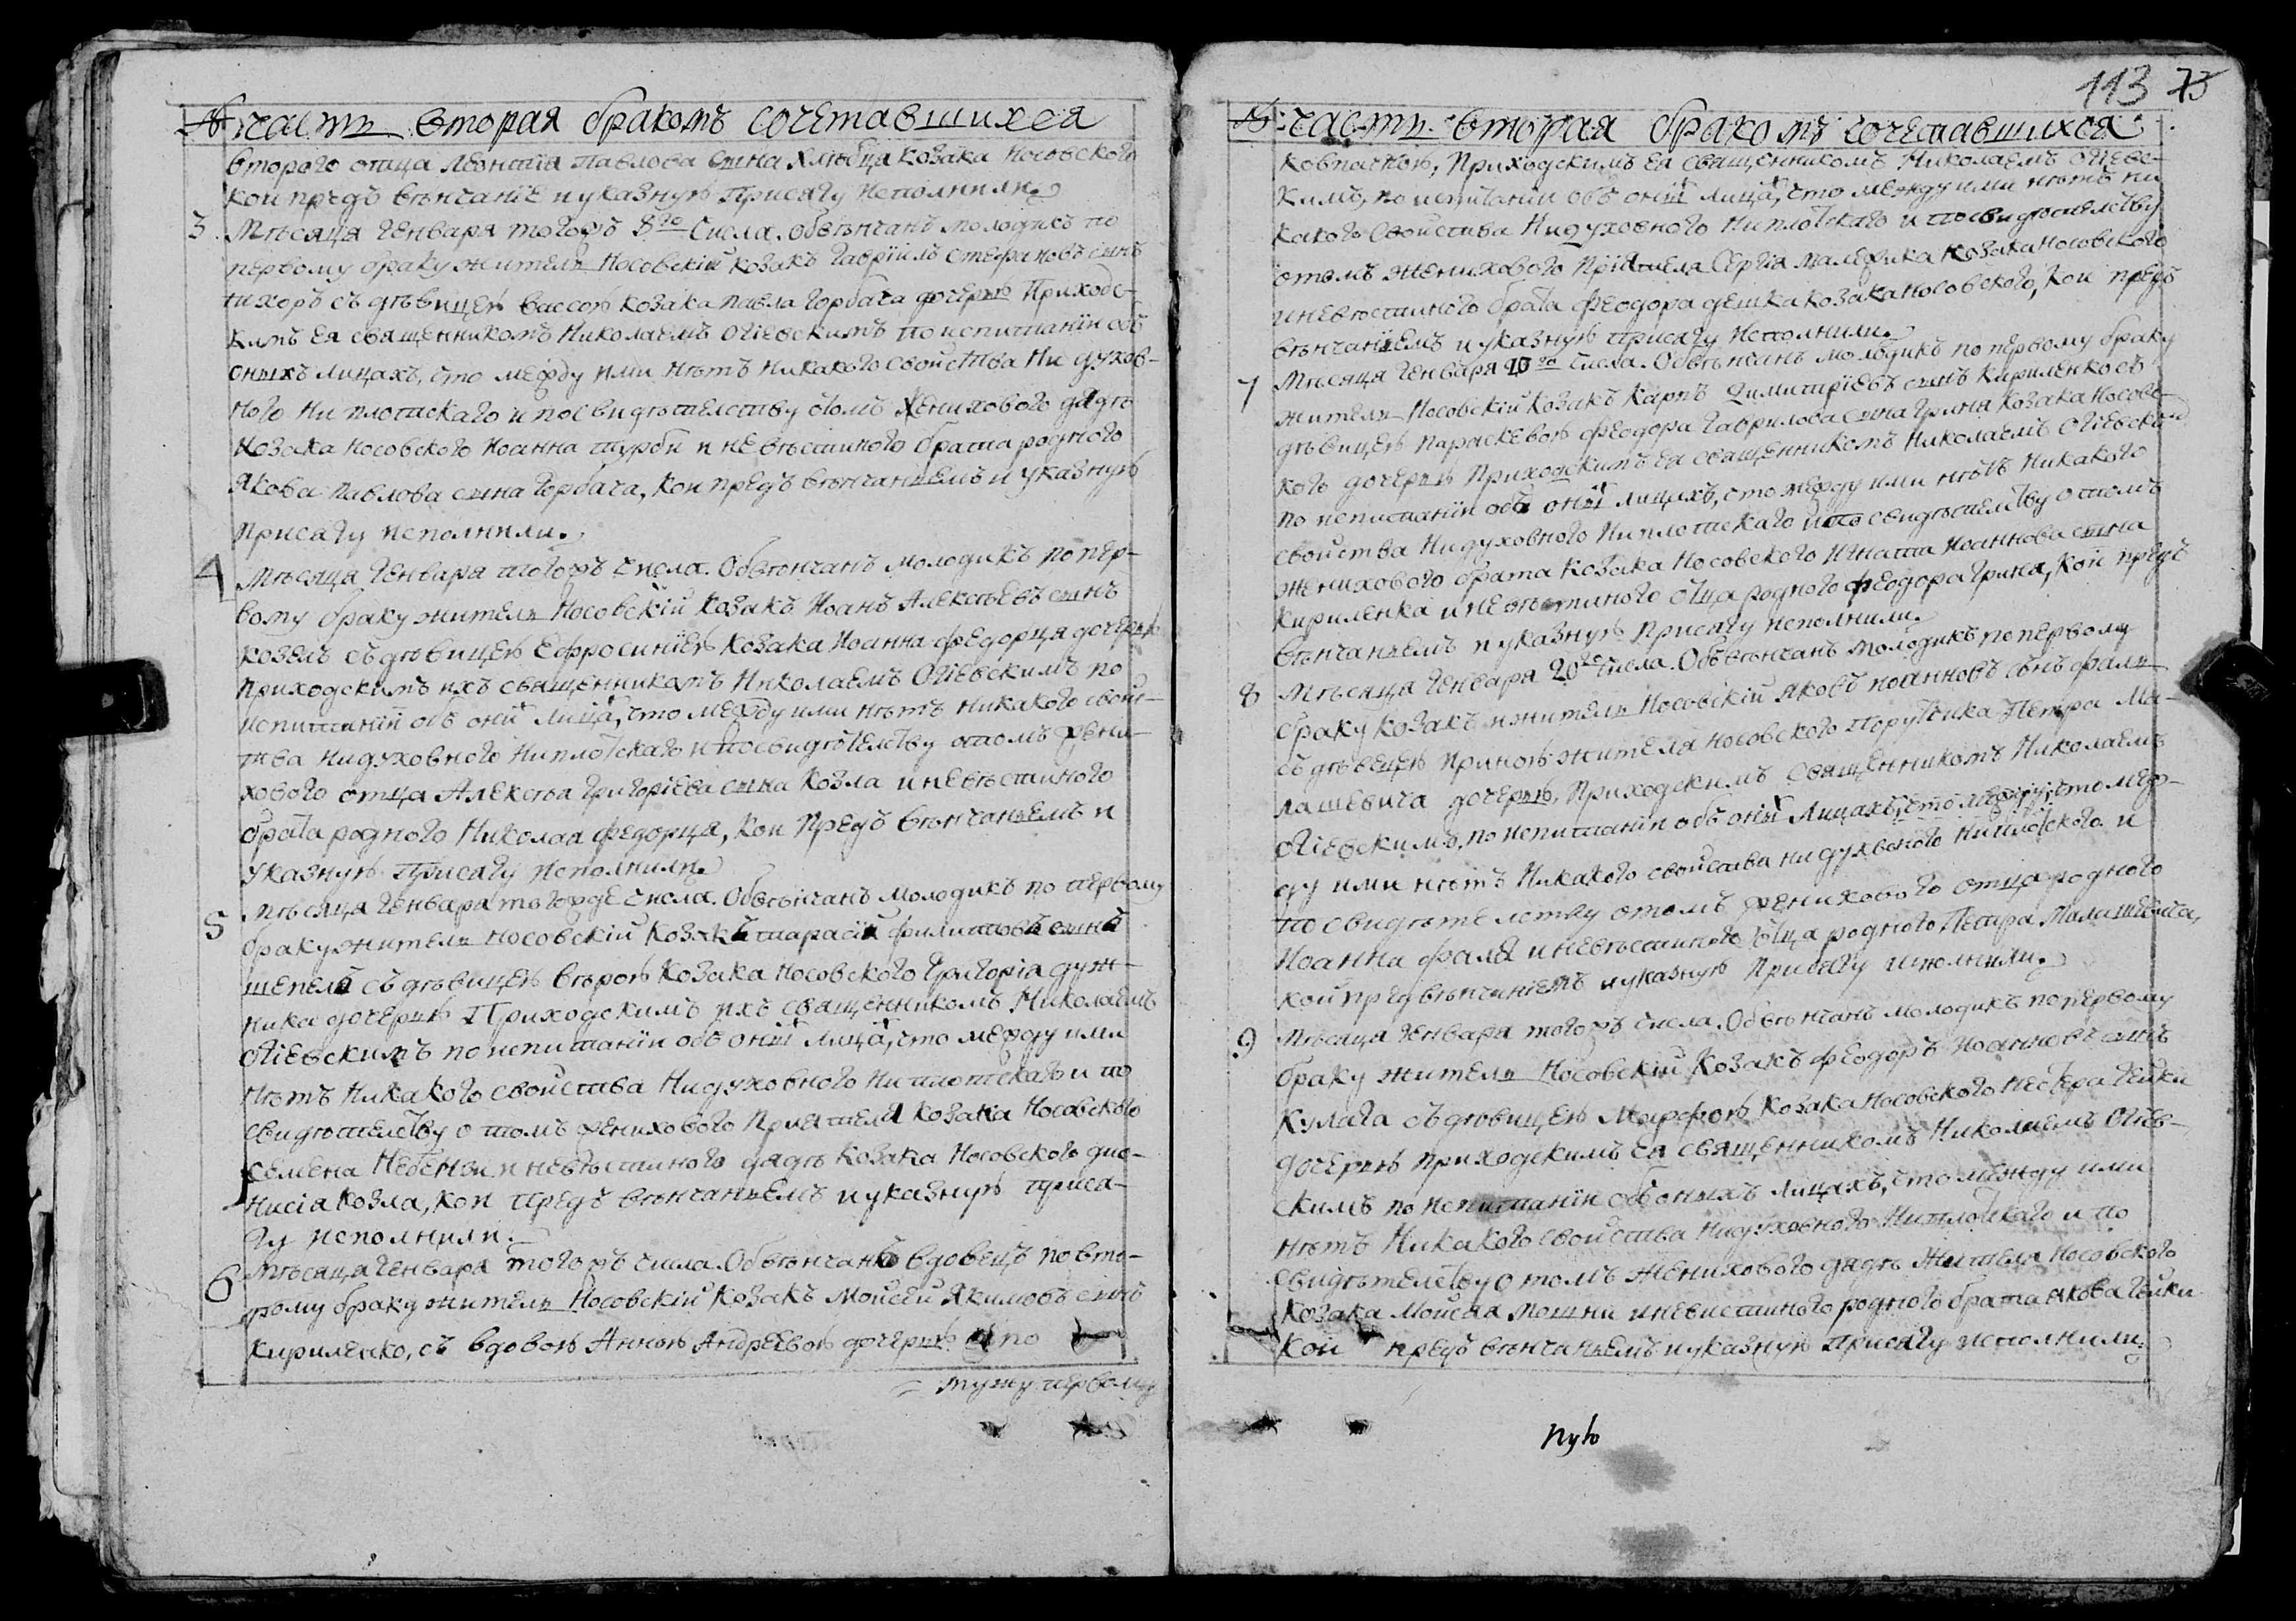 № часть вторая бракомъ сочетавшихся
второго отца Леонтія Павлова сына Хлѣбця козака Носовского
кои предъ вѣнчаніе и указную присягу исполнили.
3. Мѣсяця Генваря тогоръ 8го Числа. Обвѣнчанъ молодикъ по
первому браку житель Носовскій козакъ Гавріилъ Стефановъ сынъ
Тихоръ съ дѣвицею Вассою козака Павла Горбача дочерью Приходс-
кимъ ея священникомъ Николаемъ Огіевскимъ по испитаніи объ
оныхъ лицахъ, сто между ими нѣтъ никакого свойства ни духов-
ного ни плотскаго и посвидѣтелству отомъ женихового дядѣ
козака Носовского Иоанна Турби и невѣстиного брата родного
Якова Павлова сына Горбача, кои предъ вѣнчаньемъ и указную
присягу исполнили.
4 Мѣсяця Генваря тогоръ Числа. Обвѣнчанъ молодикъ по пер-
вому браку житель Носовскій козакъ Иоанъ Алексѣевъ сынъ
Козелъ съ дѣвицею Ефросиніею козака Иоанна Федорця дочерью
приходскимъ ихъ священникомъ Николаемъ Огіевскимъ по
испитаніи объ оныхъ лицахъ, сто между ими нѣтъ никакого свойс-
тва нидуховного ниплотскаго ипосвидѣтелству отомъ жени-
хового отца Алексѣа Григоріева сына Козла иневѣстиного
брата родного Николая Федорця, кои предъ вѣнчаньемъ и
указную присягу исполнили.
5 Мѣсяця Генваря тогорде Числа. Обвѣнчанъ молодикъ по первому
браку житель Носовскій козакъ Тарасій Филиповъ сынъ
Шепель съ дѣвицею Вѣрою козака Носовского Григорія Дуж-
ника дочерью Приходскимъ ихъ священникомъ Николаемъ
Огіевскимъ по испитаніи объ оныхъ лицахъ, сто между ими
нѣтъ никакого свойства нидуховного ниплотскаго и по
свидѣтелству о томъ женихового приятеля козака Носовского
Семена и невѣстиного дядѣ козака Носовского Дио-
нисія Козла, кои предъ вѣнчаньемъ и указную прися-
гу исполнили.
6 Мѣсяця Генваря тогоръ числа. Обвѣнчанъ вдовецъ по вто-
рому браку житель Носовскій козакъ Моисей Якимовъ сынъ
Кириленко, съ вдовою Анною Андреевою дочерью по
мужу первому
113 73
№ часть вторая бракомъ сочетавшихся
Ковпачкою, Приходскимъ ея священникомъ Николаемъ Огіевс-
кимъ, по испитаніи объ оныхъ лицахъ, сто между ими нѣтъ ни
какого свойства Нидуховного Ниплотскаго и посвидѣтелству
отомъ женихового пріятеля Сергія козака Носовского
иневѣстиного брата Феодора Дешка козака Носовского, кои предъ
вѣнчаніемъ и указную присягу исполнили.
7 Мѣсяця Генваря 20го Числа. Обвѣнчанъ молодикъ по первому браку
житель Носовскій козакъ Карпъ Димитріевъ сынъ Кириленко съ
дѣвицею Параскевою Феодора Гаврилова сына Гриня козака Носовс-
кого дочерью Приходскимъ ея священникомъ Николаемъ Огіевским
по испитаніи объ оныхъ лицахъ, сто между ими нѣтъ никакого
свойства Нидуховного Ниплотскаго ипо свидѣтелству отомъ
женихового брата козака Носовского Игната Иоаннова сына
Кириленка иневѣстиного отца родного Феодора Гриня, кои предъ
вѣнчаньемъ иуказную присягу исполнили.
8 Мѣсяця Генваря 20го Числа. Обвѣнчанъ молодикъ по первому
браку козакъ ижитель Носовскій Яковъ Иоанновъ сынъ Фаль
съ дѣвецею Ириною жителя Носовского Порутчика Петра Ма-
лашевича дочерью, Приходскимъ Священникомъ Николаемъ
Огіевскимъ, по испитаніи объ оных Лицахъ, сто между, сто меж-
ду ими нѣтъ Никакого свойства нидуховного ниплотского и
по свидѣтелству отомъ женихового отца родного
Иоанна Фаля иневѣстиного отца родного Петра Малашевича,
кои пред вѣнчаніемъ иуказную Присягу исполнили.
9 Мѣсяця Генваря тогоръ Числа. Обвѣнчанъ молодикъ по первому
браку житель Носовскій Козакъ Феодоръ Иоанновъ сынъ
Кулага съ дѣвицею Марфою козака Носовского Нестера Гейки
дочерью приходскимъ ея священникомъ Николаемъ Огіев-
скимъ по испитаніи объ оныхъ лицахъ, сто между ими
нѣтъ Никакого свойства Нидуховного Ниплотскаго и по
свидѣтелству отомъ женихового дядѣ жителя Носовского
козака Моисея Мошни иневистиного родного брата Якова Гейки
кои предъ вѣнчаньемъ иуказную присягу исполнили.